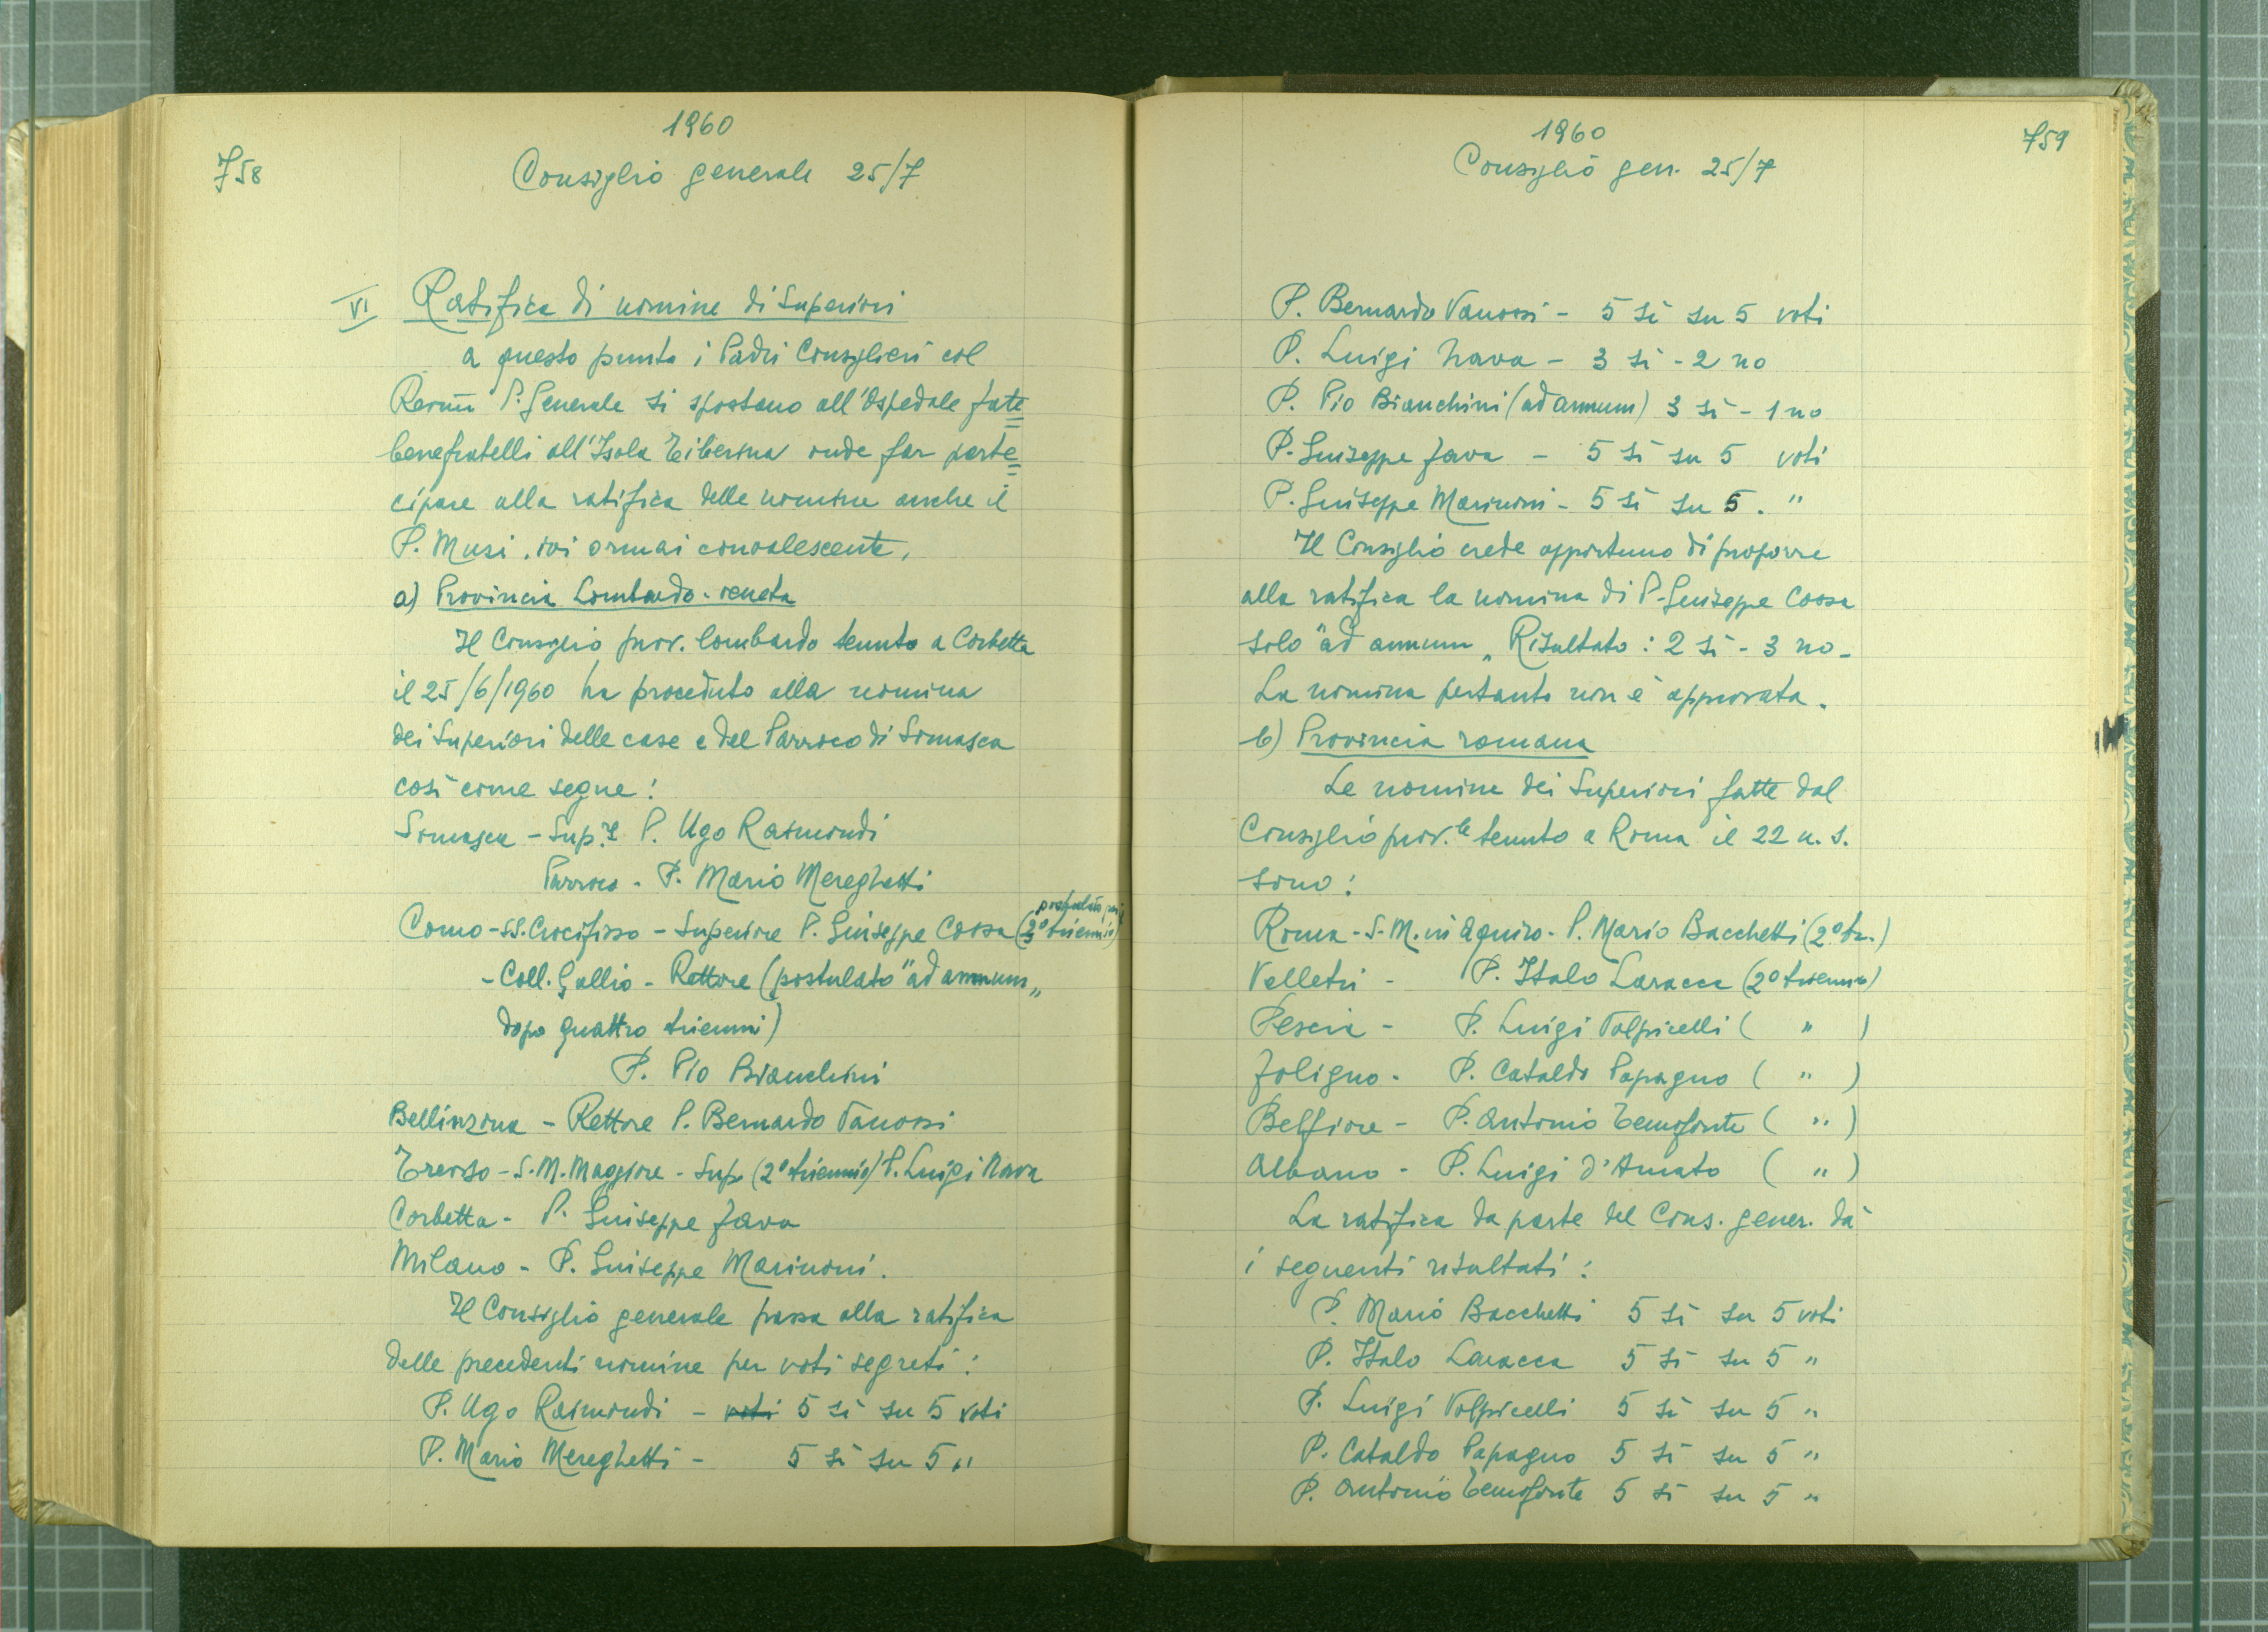 758
1960
Consiglio generale 25/7
VI Ratifica di nomine di Superiori
a questo punto i Padri Consiglieri col
Rev.mo P. Generale si spostano all'Ospedale fate=
benefratelli all'Isola Tiberina onde far parte=
cipare alla ratifica delle nomine anche il
P. Musi, ivi ormai convalescente.
a) Provincia Lombardo-veneta
Il Consiglio prov. lombardo tenuto a Corbetta
il 25/6/1960 ha proceduto alla nomina
dei Superiori delle case e del Parroco di Somasca
così come segue:
Somasca - Sup.re P. Ugo Raimondi
Parroco - P. Mario Mereghetti
postulato per il
Como - SS. Crocifisso - Superiore P. Giuseppe Cossa (3º triennio)
- Coll. Gallio - Rettore (postulato "ad annum„
dopo quattro trienni)
P. Pio Bianchini
Bellinzona - Rettore P. Bernardo Vanossi
Treviso - S. M. Maggiore - Sup. (2º triennio) P. Luigi Nava
Corbetta - P. Giuseppe Fava
Milano - P. Giuseppe Marinoni.
Il Consiglio generale passa alla ratifica
delle precedenti nomine per voti segreti:
P. Ugo Raimondi - voti 5 sì su 5 voti
P. Mario Mereghetti - 5 sì su 5 "
759
1960
Consiglio gen. 25/7
P. Bernardo Vanossi - 5 sì su 5 voti
P. Luigi Nava - 3 sì - 2 no
P. Pio Bianchini (ad annum) 3 sì - 1 no
P. Giuseppe Fava - 5 sì su 5 voti
P. Giuseppe Marinoni - 5 sì su 5. "
Il Consiglio crede opportuno di proporre
alla ratifica la nomina di P. Giuseppe Cossa
solo "ad annum„ Risultato: 2 sì - 3 no -
La nomina pertanto non è approvata.
b) Provincia romana
Le nomine dei Superiori fatte dal
Consiglio prov.le tenuto a Roma il 22 u. s.
sono:
Roma - S. M. in Aquiro - P. Mario Bacchetti (2º tr.)
Velletri - P. Italo Laracca (2º triennio)
Pescia - P. Luigi Volpicelli ( " )
Foligno - P. Cataldo Papagno ( " )
Belfiore - P. Antonio Temofonte ( " )
Albano - P. Luigi d'Amato ( " )
La ratifica da parte del Cons. gener. dà
i seguenti risultati:
P. Mario Bacchetti 5 sì su 5 voti
P. Italo Laracca 5 sì su 5 "
P. Luigi Volpicelli 5 sì su 5 "
P. Cataldo Papagno 5 sì su 5 "
P. Antonio Temofonte 5 sì su 5 "